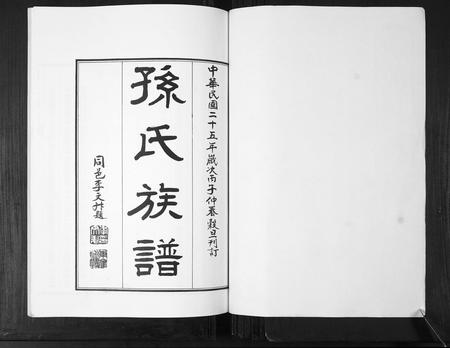 中華民國二十五年歲次丙子仲春穀旦刊訂
孫氏族譜
同邑李文炸題